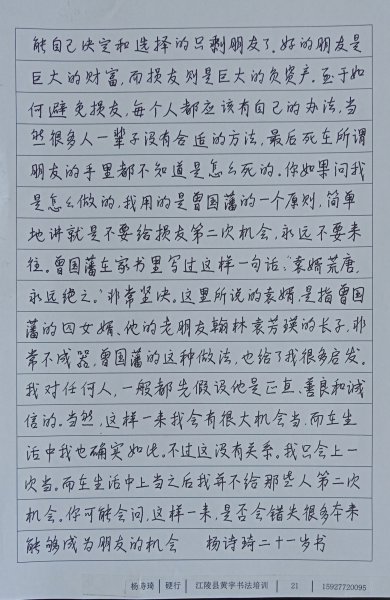 能自己决定和选择的只剩朋友了。好的朋友是
巨大的财富,而损友则是巨大的负资产。至于如
何避免损友,每个人都应该有自己的办法,当
然很多人一辈子没有合适的方法,最后死在所谓
朋友的手里都不知道是怎么死的。你如果问我
是怎么做的,我用的是曾国藩的一个原则,简单
地讲就是不要给损友第二次机会,永远不要来
往。曾国藩在家书里写过这样一句话:“袁婿荒唐,
永远绝之。”非常坚决。这里所说的袁婿,是指曾国
藩的四女婿、他的老朋友翰林袁芳瑛的长子,非
常不成器,曾国藩的这种做法,也给了我很多启发。
我对任何人,一般都先假设他是正直、善良和诚
信的。当然,这样一来我会有很大机会当,而在生
活中我也确实如此。不过这没有关系。我只会上一
次当。而在生活中上当之后我并不给那些人第二次
机会。你可能会问,这样一来,是否会错失很多本来
能够成为朋友的机会 杨诗琦二十一岁书
杨诗琦 | 硬行 | 江陵县黄宇书法培训 | 21 | 15927720095